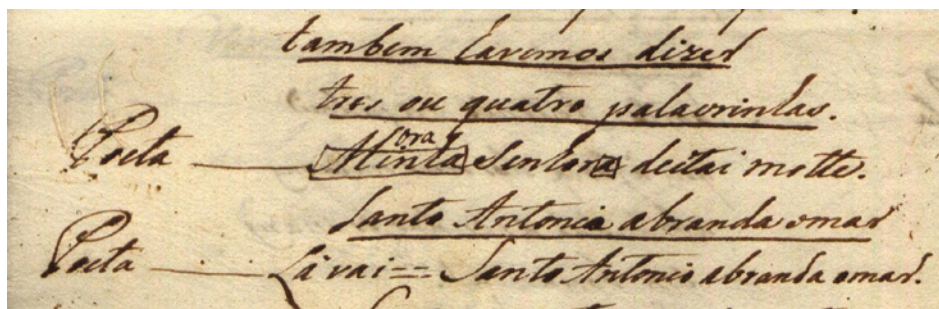 tambem havemos dizer
tres ou quatro palavrinhas.
ora
Poeta — Minha Senhora deitai motte.
Santo Antonio abranda o mar
Poeta — Lá vai == Santo Antonio abranda o mar.